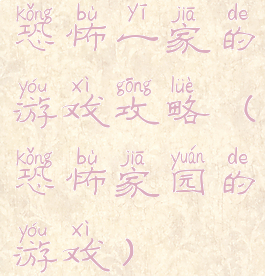 kǒng bù yī jiā de
恐怖一家的
yóu xì gōng lüè
游戏攻略（
kǒng bù jiā yuán de
恐怖家园的
yóu xì
游戏）